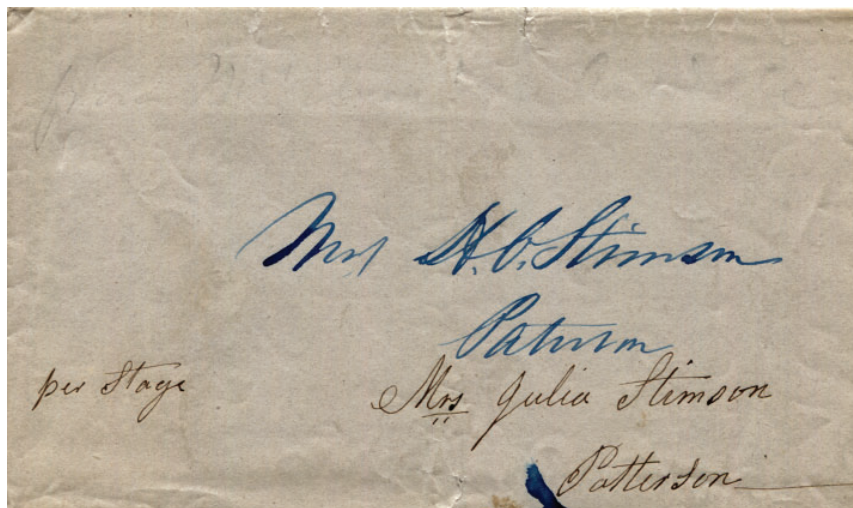 Mrs H. C. Stimson
Paterson
per Stage
Mrs Julia Stimson
Patterson